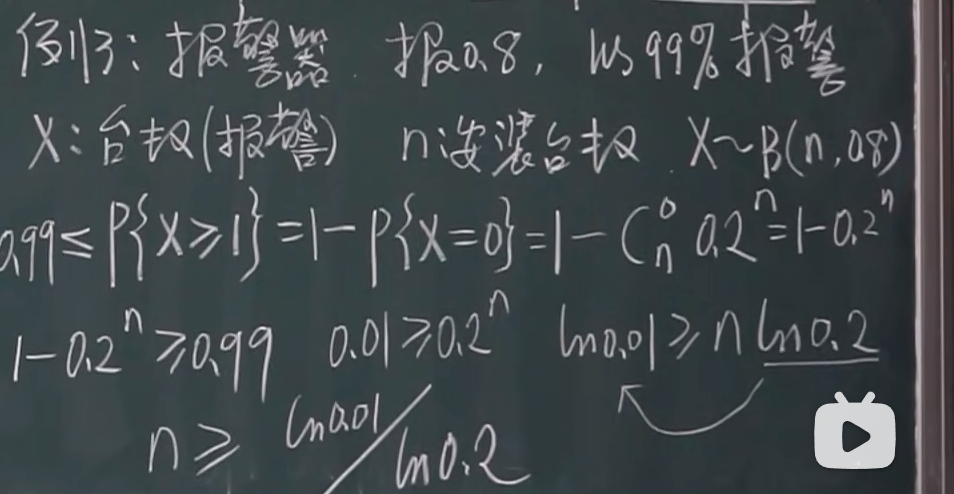 例3: 报警器. 报0.8, 以99%报警
X: 台数(报警) n:安装台数 X~B(n,0.8)
0.99≤P{X≥1}=1-P{X=0}=1-C_n^0 0.2^n=1-0.2^n
1-0.2^n≥0.99 0.01≥0.2^n ln0.01≥n ln0.2
n≥ ln0.01/ln0.2